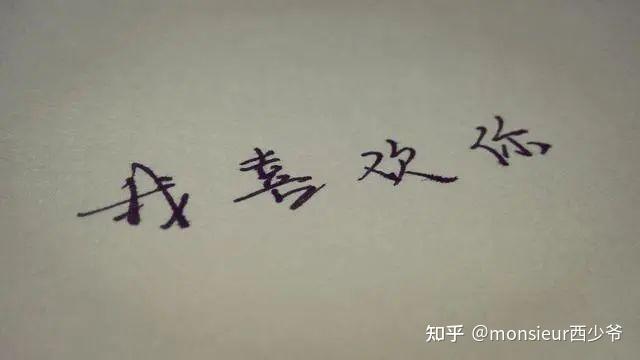 我喜欢你
知乎 @monsieur西少爷